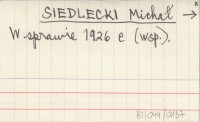 SIEDLECKI Michał →
W sprawie 1926 e (wsp.).
BJ/044/0137